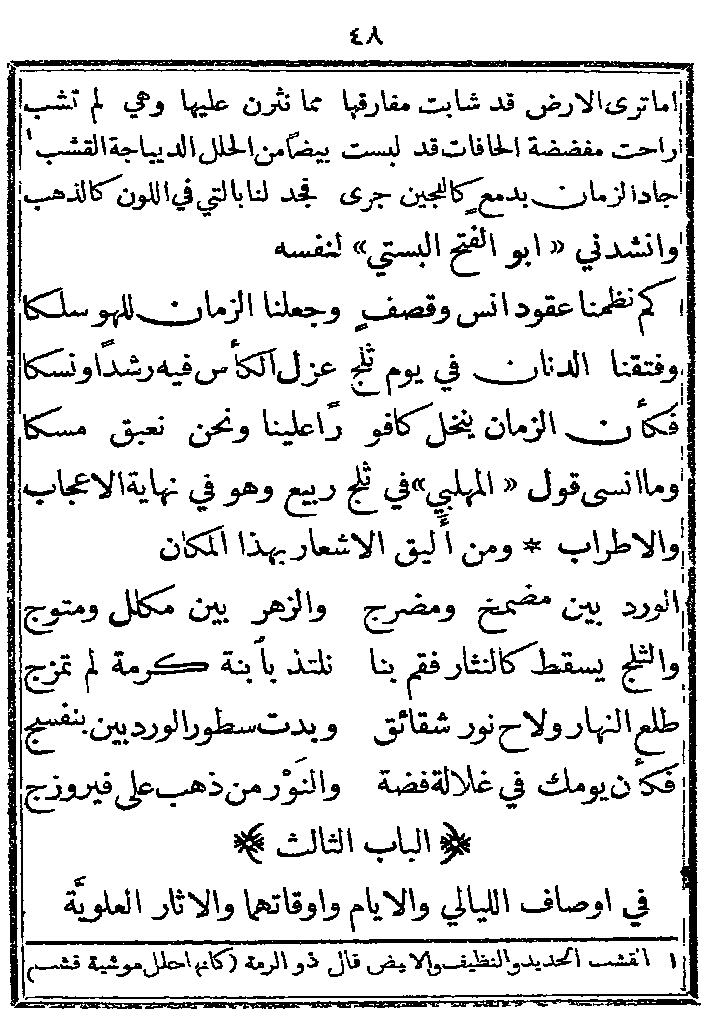 ٤٨
اما ترى الارض قد شابت مفارقها مما نثرن عليها وهي لم تشب
راحت مفضضة الحافات قد لبست بيضاً من الحلل الديباجة القشب ١
جاد الزمان بدمع كاللجين جرى فجد لنا بالتي في اللون كالذهب
وانشدني « ابو الفتح البستي » لنفسه
كم نظمنا عقود انس وقصف وجعلنا الزمان للهو سلكا
وفتقنا الدنان في يوم ثلج عزل الكأس فيه رشداً ونسكا
فكأن الزمان ينخل كافو راً علينا ونحن نعبق مسكا
وما انسى قول « المهلبي » في ثلج ربيع وهو في نهاية الاعجاب
والاطراب * ومن أليق الاشعار بهذا المكان
الورد بين مضمخ ومضرج والزهر بين مكلل ومتوج
والثلج يسقط كالنثار فقم بنا نلتذ بأبنة كرمة لم تمزج
طلع النهار ولاح نور شقائق وبدت سطور الورد بين بنفسج
فكأن يومك في غلالة فضة والنَوْر من ذهب على فيروزج
﴿ الباب الثالث ﴾
في اوصاف الليالي والايام واوقاتهما والاثار العلويَّة
١ القشب الجديد والنظيف والابيض قال ذو الرمة (كانها حلل موشية قشب)